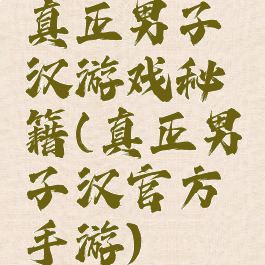 真正男子
汉游戏秘
籍(真正男
子汉官方
手游)